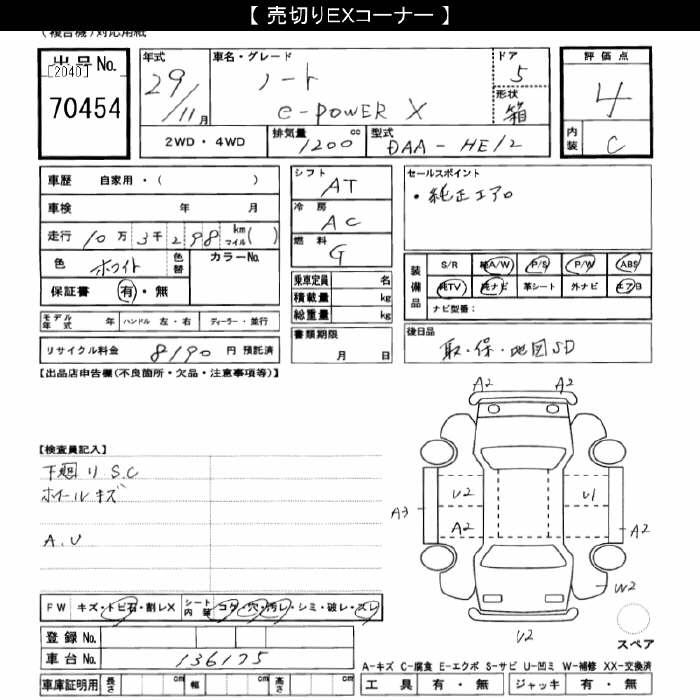 【 売切りEXコーナー 】
(複合機)対応用紙
出品No.
[2040]
70454
年式
29/11月
車名・グレード
ノート
e-POWER X
ドア
5
形状
箱
評価点
4
内装
C
2WD・4WD
排気量
1200 cc
型式
DAA-HE12
車歴 自家用・( )
車検 年 月
走行 10万3千298 km マイル( )
色 ホワイト
色替
カラーNo.
保証書 有・無
モデル年式 年 ハンドル 左・右 ディーラー・並行
リサイクル料金 8190 円 預託済
シフト
AT
冷房
AC
燃料
G
乗車定員 名
積載量 kg
総重量 kg
書類期限
月 日
セールスポイント
・純正エアロ
装備品
S/R 純A/W P/S P/W ABS
純TV 純ナビ 革シート 外ナビ エアB
ナビ型番:
後日品
取・保・地図SD
【出品店申告欄(不良箇所・欠品・注意事項等)】
【検査員記入】
下廻り S.C
ホイールキズ
A.U
A2 A2
U2 U1
A3 A2 A2
W2
U2
スペア
FW キズ・トビ石・割レX シート内装 コゲ・穴・汚レ・シミ・破レ・スレ
登録No.
車台No. 136175
車庫証明用 長さ cm 幅 cm 高さ cm
A-キズ C-腐食 E-エクボ S-サビ U-凹ミ W-補修 XX-交換済
工具 有・無 ジャッキ 有・無